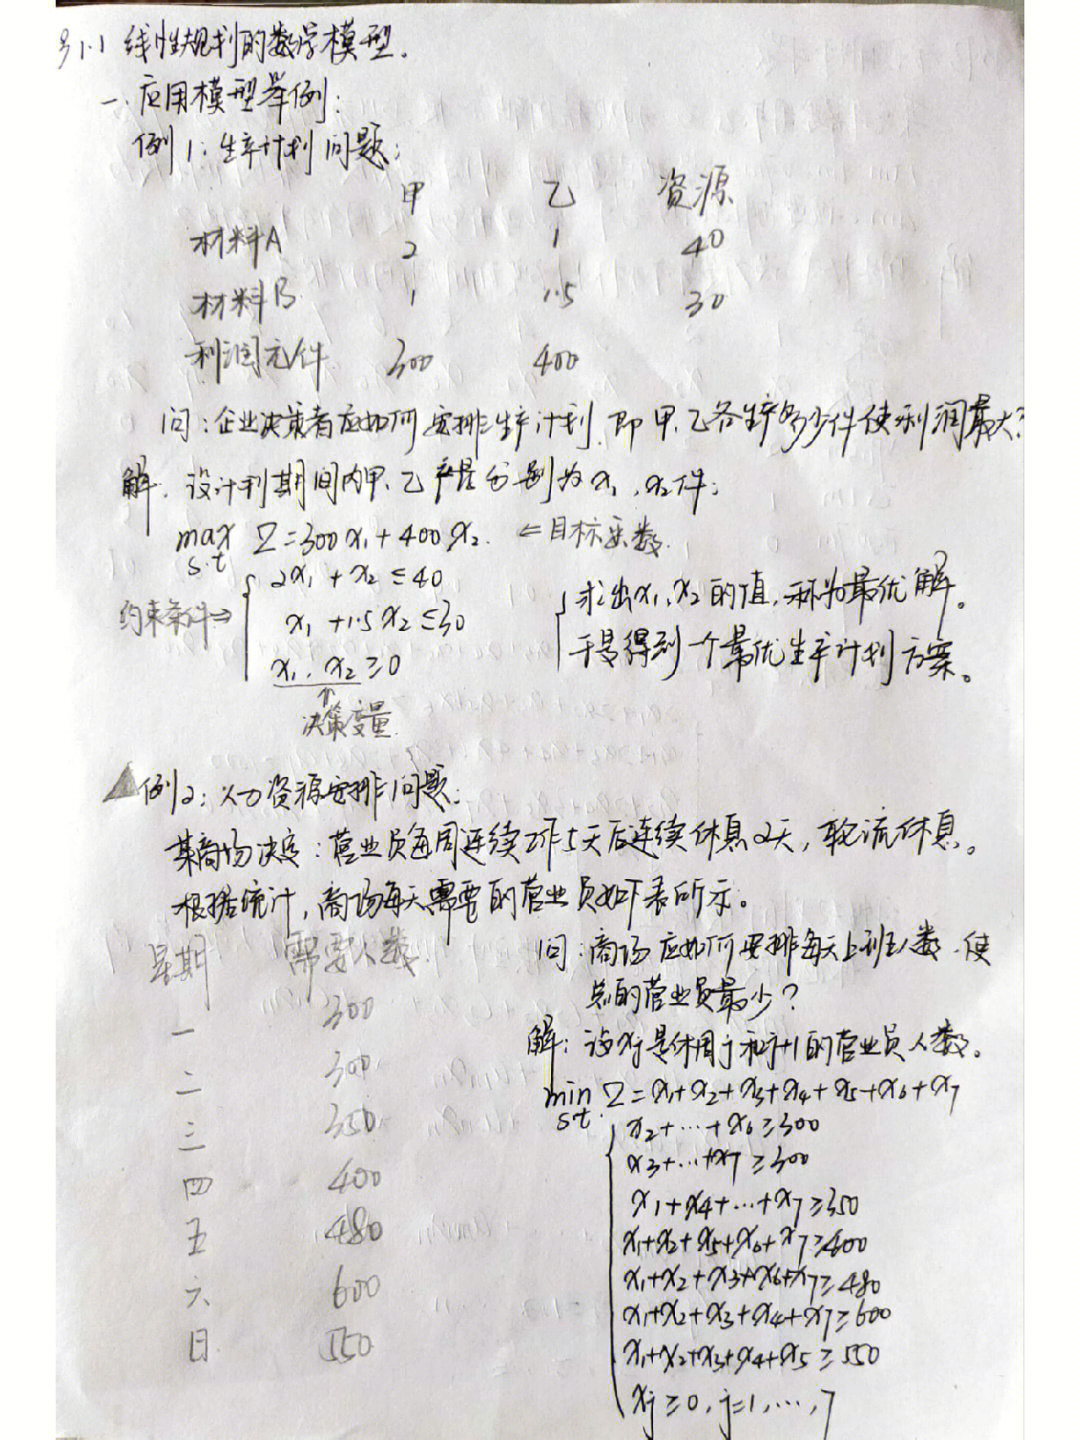 §1.1 线性规划的数学模型.
一、应用模型举例:
例1:生产计划问题:
甲 乙 资源
材料A 2 1 40
材料B 1 1.5 30
利润元/件 300 400
问:企业决策者应如何安排生产计划,即甲、乙各生产多少件使利润最大?
解.设计划期间内甲、乙产量分别为x₁,x₂件;
max Z=300x₁+400x₂. ⇐目标函数.
s.t
2x₁+x₂≤40
约束条件⇒ x₁+1.5x₂≤30
x₁.x₂≥0
↑
决策变量.
求出x₁,x₂的值,称为最优解。
于是得到一个最优生产计划方案。
例2:人力资源安排问题:
某商场决定:营业员每周连续工作5天后连续休息2天,轮流休息。
根据统计,商场每天需要的营业员如下表所示。
星期 需要人数
一 300
二 300
三 350
四 400
五 480
六 600
日 550
问:商场应如何安排每天上班人数,使
总的营业员最少?
解:设xj是休周j和j+1的营业员人数。
min Z=x₁+x₂+x₃+x₄+x₅+x₆+x₇
s.t.
x₂+…+x₆≥300
x₃+…+x₇≥300
x₁+x₄+…+x₇≥350
x₁+x₂+x₅+x₆+x₇≥400
x₁+x₂+x₃+x₆+x₇≥480
x₁+x₂+x₃+x₄+x₇≥600
x₁+x₂+x₃+x₄+x₅≥550
xj≥0,j=1,…,7